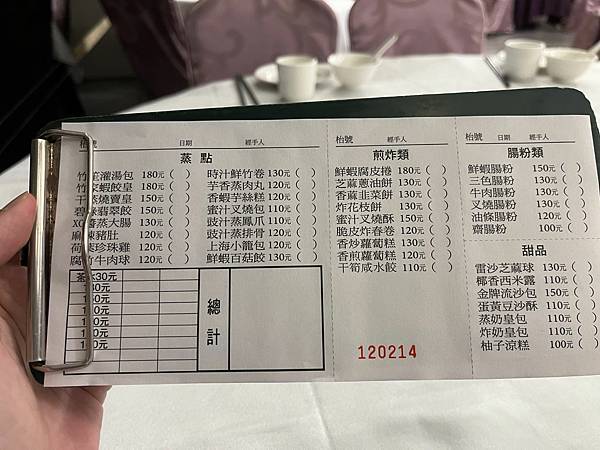 枱號 日期 經手人
蒸點
竹笙灌湯包 180元 ( )
竹炭蝦餃皇 180元 ( )
干蒸燒賣皇 150元 ( )
碧綠翡翠餃 150元 ( )
XO醬蒸大腸 130元 ( )
麻辣豬肚 120元 ( )
荷葉珍珠雞 120元 ( )
腐竹牛肉球 120元 ( )
時汁鮮竹卷 130元 ( )
芋香蒸肉丸 120元 ( )
香蝦芋絲糕 120元 ( )
蜜汁叉燒包 110元 ( )
豉汁蒸鳳爪 120元 ( )
豉汁蒸排骨 120元 ( )
上海小籠包 120元 ( )
鮮蝦百菇餃 130元 ( )
茶×30元
110元
150元
總計
枱號 經手人
煎炸類
鮮蝦腐皮捲 180元 ( )
芝蔴蔥油餅 130元 ( )
香蔴韭菜餅 130元 ( )
炸花枝餅 130元 ( )
蜜汁叉燒酥 150元 ( )
脆皮炸春卷 120元 ( )
香炒蘿蔔糕 130元 ( )
香煎蘿蔔糕 120元 ( )
干筍咸水餃 110元 ( )
120214
枱號 經手人
腸粉類
鮮蝦腸粉 150元 ( )
三色腸粉 130元 ( )
牛肉腸粉 130元 ( )
叉燒腸粉 130元 ( )
油條腸粉 120元 ( )
齋腸粉 100元 ( )
甜品
雷沙芝蔴球 130元 ( )
椰香西米露 110元 ( )
金牌流沙包 150元 ( )
蛋黃豆沙酥 110元 ( )
蒸奶皇包 110元 ( )
炸奶皇包 110元 ( )
柚子涼糕 100元 ( )